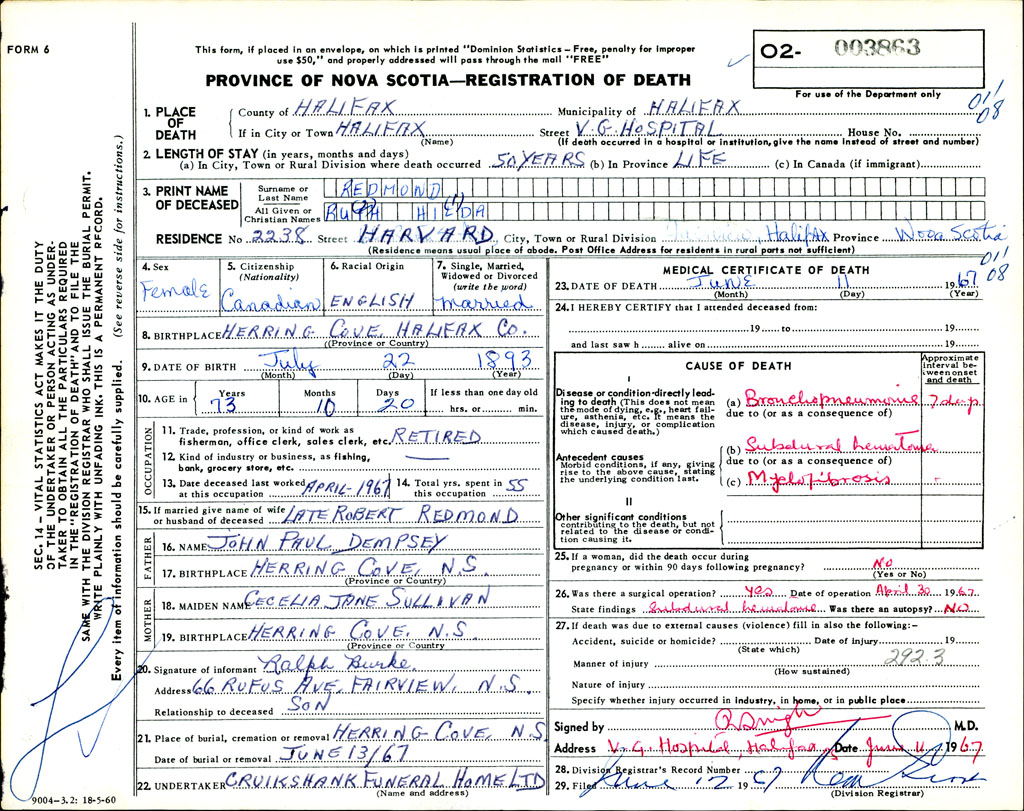 FORM 6
This form, if placed in an envelope, on which is printed "Dominion Statistics – Free, penalty for improper
use $50," and properly addressed will pass through the mail "FREE"
PROVINCE OF NOVA SCOTIA—REGISTRATION OF DEATH
02- 003863
For use of the Department only
011
08
1. PLACE OF DEATH
County of HALIFAX Municipality of HALIFAX
If in City or Town HALIFAX Street V.G. HOSPITAL House No.
(Name) (If death occurred in a hospital or institution, give the name instead of street and number)
2. LENGTH OF STAY (in years, months and days)
(a) In City, Town or Rural Division where death occurred 50 YEARS (b) In Province LIFE (c) In Canada (if immigrant)
3. PRINT NAME OF DECEASED
Surname or Last Name REDMOND
All Given or Christian Names RUTH (2) HILDA (1)
RESIDENCE No 2238 Street HARVARD City, Town or Rural Division Halifax Province Nova Scotia
(Residence means usual place of abode. Post Office Address for residents in rural parts not sufficient)
011
08
4. Sex Female
5. Citizenship (Nationality) Canadian
6. Racial Origin ENGLISH
7. Single, Married, Widowed or Divorced (write the word) Married
8. BIRTHPLACE HERRING COVE, HALIFAX CO.
(Province or Country)
9. DATE OF BIRTH July 22 1893
(Month) (Day) (Year)
10. AGE in Years 73 Months 10 Days 20 If less than one day old hrs. or min.
OCCUPATION
11. Trade, profession, or kind of work as
fisherman, office clerk, sales clerk, etc. RETIRED
12. Kind of industry or business, as fishing,
bank, grocery store, etc. —
13. Date deceased last worked at this occupation APRIL-1967 14. Total yrs. spent in this occupation 55
15. If married give name of wife
or husband of deceased LATE ROBERT REDMOND
FATHER
16. NAME JOHN PAUL DEMPSEY
17. BIRTHPLACE HERRING COVE, N.S.
(Province or Country)
MOTHER
18. MAIDEN NAME CECELIA JANE SULLIVAN
19. BIRTHPLACE HERRING COVE, N.S.
(Province or Country)
20. Signature of informant Ralph Burke
Address 66 RUFUS AVE, FAIRVIEW, N.S.
Relationship to deceased SON
21. Place of burial, cremation or removal HERRING COVE, N.S
Date of burial or removal JUNE 13/67
22. UNDERTAKER CRUIKSHANK FUNERAL HOME LTD
(Name and address)
9004-3.2: 18-5-60
MEDICAL CERTIFICATE OF DEATH
23. DATE OF DEATH JUNE 11 1967
(Month) (Day) (Year)
24. I HEREBY CERTIFY that I attended deceased from:
19 to 19
and last saw h alive on 19
CAUSE OF DEATH
Approximate interval between onset and death
I
Disease or condition directly leading to death (This does not mean the mode of dying, e.g., heart failure, asthenia, etc. It means the disease, injury, or complication which caused death.)
(a) Bronchopneumonia 7 days
due to (or as a consequence of)
Antecedent causes
Morbid conditions, if any, giving rise to the above cause, stating the underlying condition last.
(b) Subdural hematoma
due to (or as a consequence of)
(c) Myelofibrosis -
II
Other significant conditions
contributing to the death, but not related to the disease or condition causing it.
25. If a woman, did the death occur during
pregnancy or within 90 days following pregnancy? No
(Yes or No)
26. Was there a surgical operation? yes Date of operation April 30 1967
State findings Subdural hematoma Was there an autopsy? NO
27. If death was due to external causes (violence) fill in also the following:–
Accident, suicide or homicide? Date of injury 19
(State which)
292.3
Manner of injury
(How sustained)
Nature of injury
Specify whether injury occurred in industry, in home, or in public place
Signed by M.D.
Address V.G. Hospital, Halifax Date June 11 1967
28. Division Registrar's Record Number
29. Filed June 12 1967
(Division Registrar)
SEC. 14 – VITAL STATISTICS ACT MAKES IT THE DUTY
OF THE UNDERTAKER OR PERSON ACTING AS UNDERTAKER
TO OBTAIN ALL THE PARTICULARS REQUIRED
IN THE "REGISTRATION OF DEATH" AND TO FILE THE
SAME WITH THE DIVISION REGISTRAR WHO SHALL ISSUE THE BURIAL PERMIT.
WRITE PLAINLY WITH UNFADING INK. THIS IS A PERMANENT RECORD.
Every item of information should be carefully supplied. (See reverse side for instructions.)